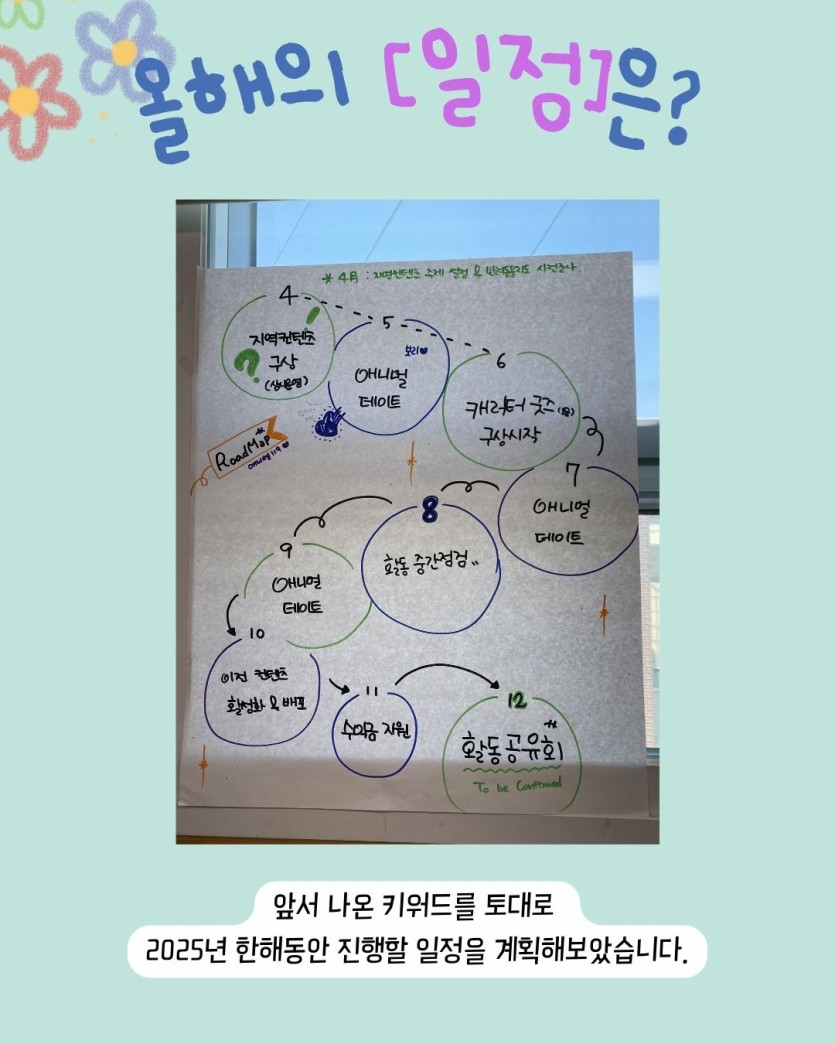 올해의 [일정]은?
* 4월 : 지역컨텐츠 주제 설정 및 반려동물지도 사전조사.
4
지역컨텐츠
구상
(상시운영)
5
보리♥
애니멀
데이트
6
캐릭터 굿즈
구상시작
RoadMap
애니멀119♥
7
애니멀
데이트
8
활동 중간점검
9
애니멀
데이트
10
이전 컨텐츠
활성화 및 배포
11
수익금 지원
12
활동공유회
To be Continued
앞서 나온 키워드를 토대로
2025년 한해동안 진행할 일정을 계획해보았습니다.